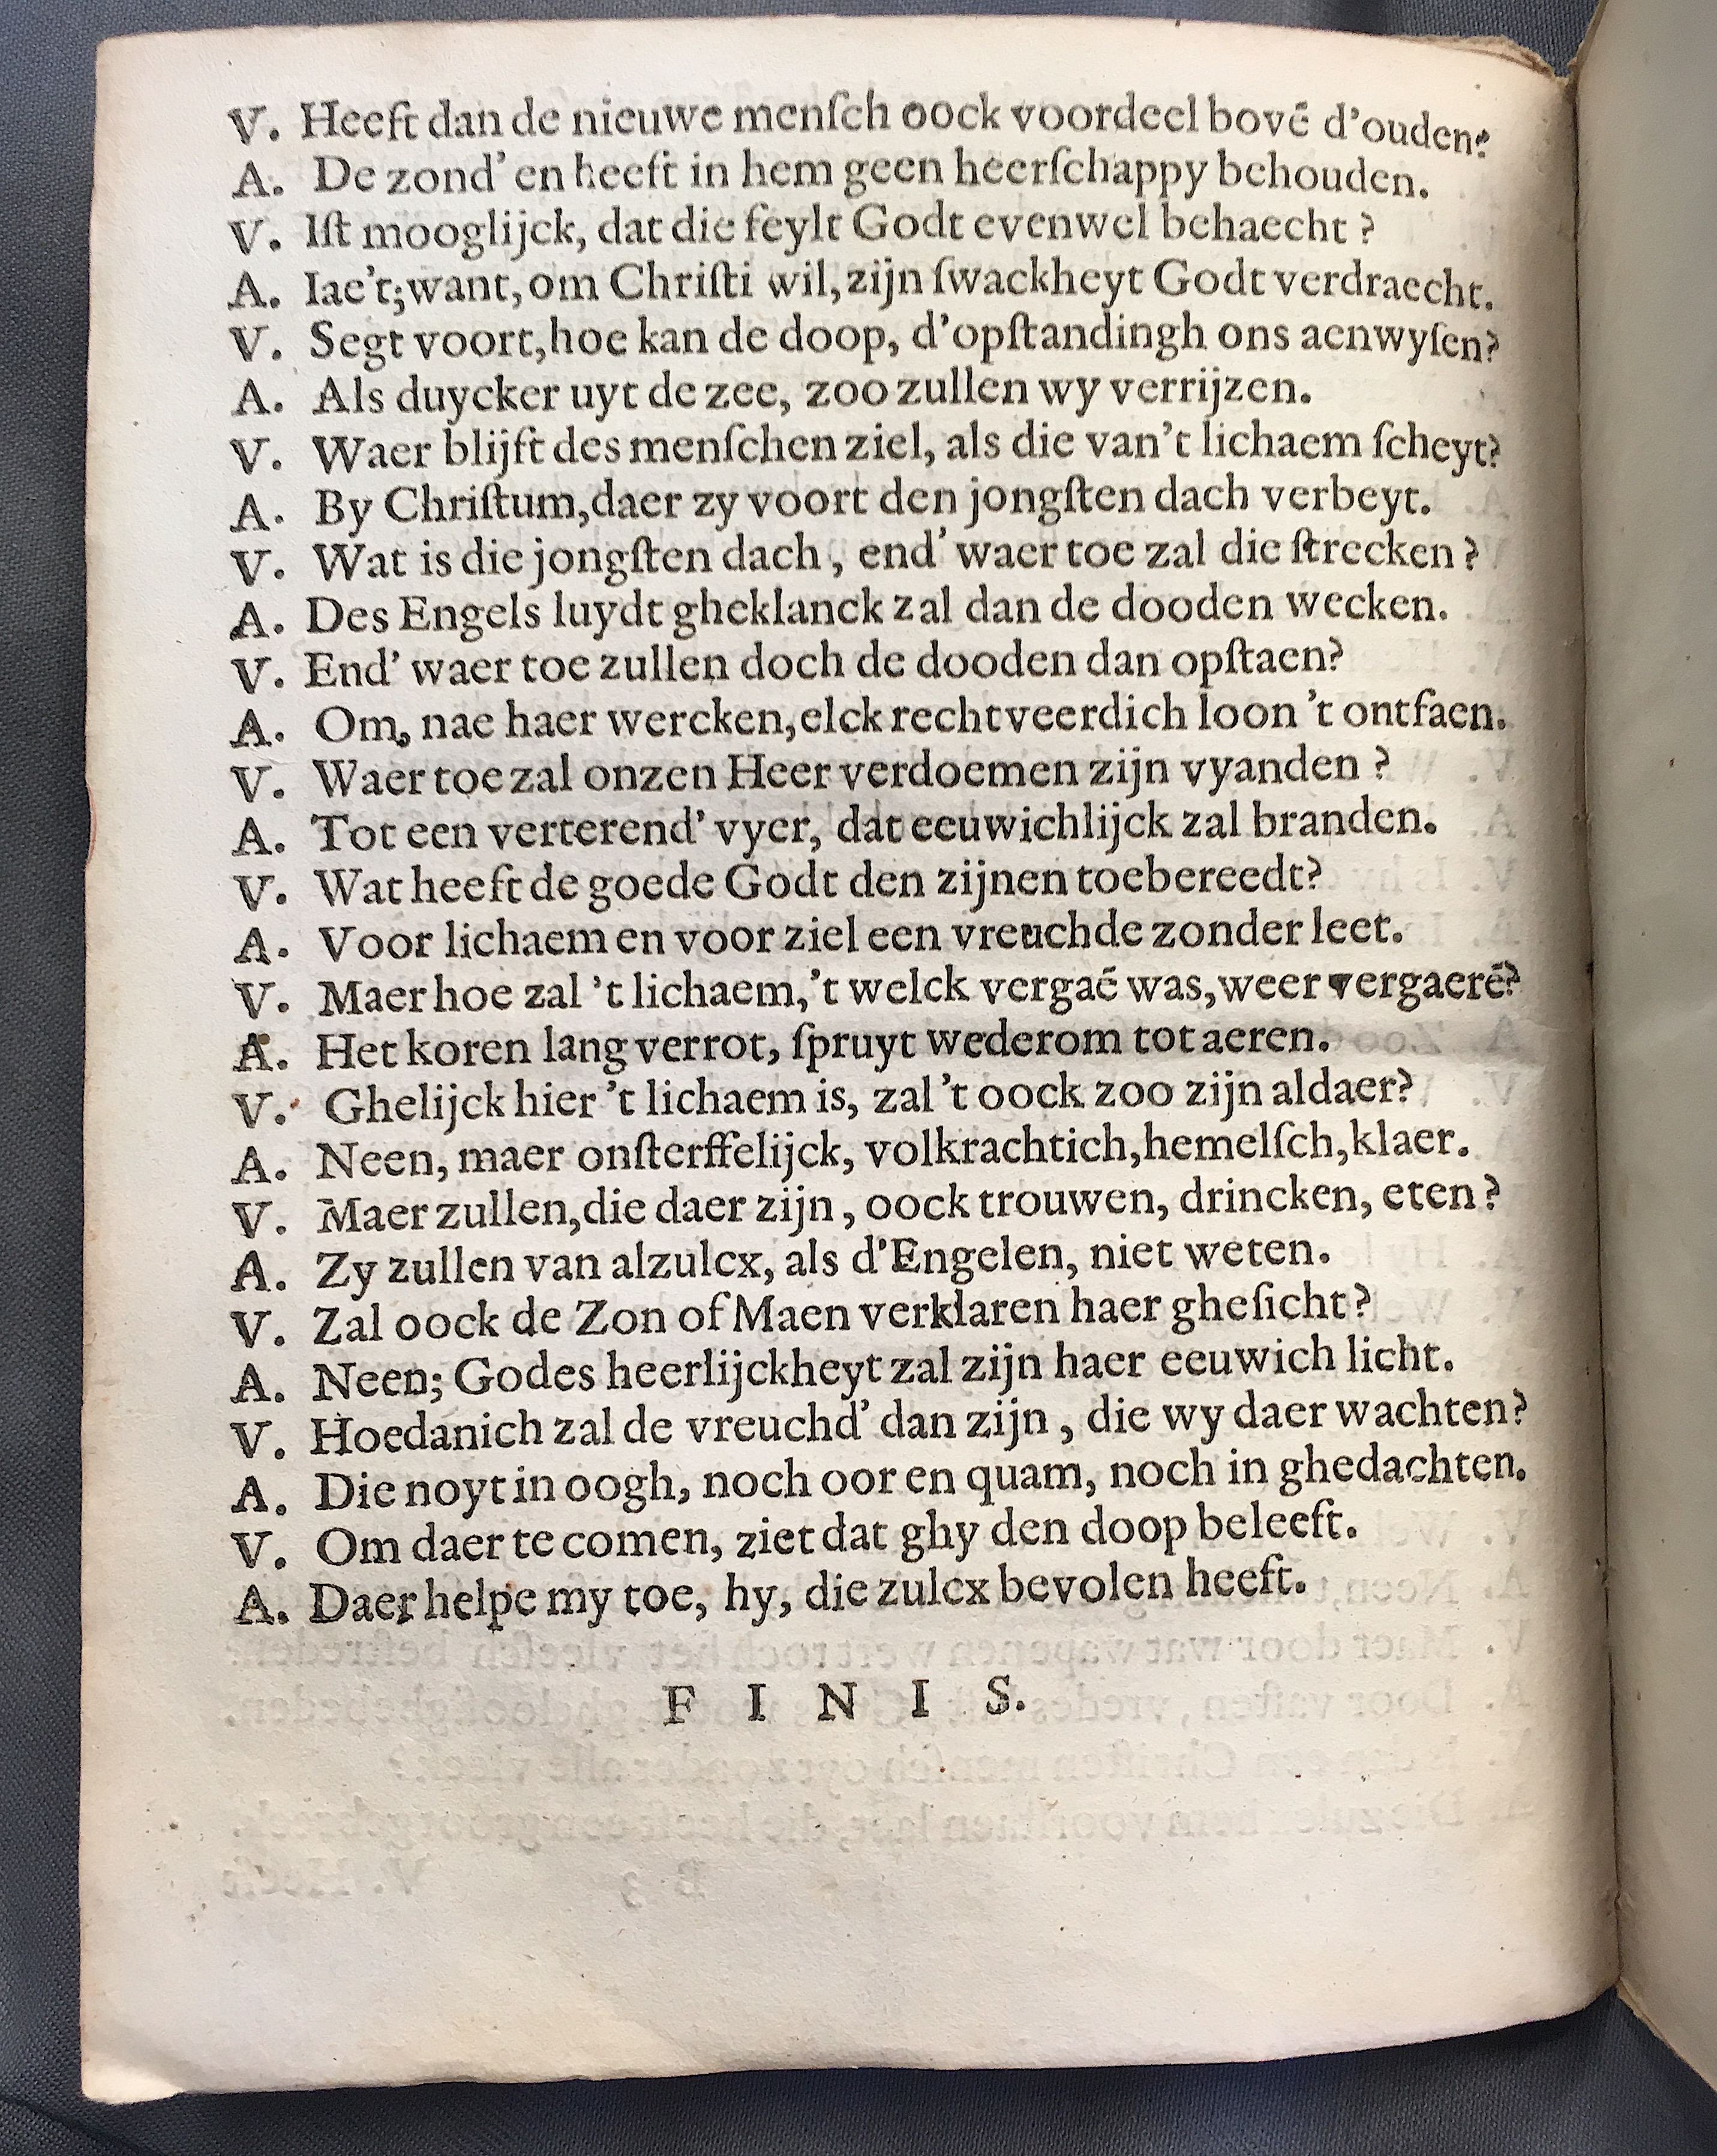 V. Heeft dan de nieuwe menſch oock voordeel bovē d'ouden?
A. De zond' en heeft in hem geen heerſchappy behouden.
V. Iſt mooglijck, dat die feylt Godt evenwel behaecht?
A. Iae't; want, om Chriſti wil, zijn ſwackheyt Godt verdraecht.
V. Segt voort, hoe kan de doop, d'opſtandingh ons aenwyſen?
A. Als duycker uyt de zee, zoo zullen wy verrijzen.
V. Waer blijft des menſchen ziel, als die van't lichaem ſcheyt?
A. By Chriſtum, daer zy voort den jongſten dach verbeyt.
V. Wat is die jongſten dach, end' waer toe zal die ſtrecken?
A. Des Engels luydt gheklanck zal dan de dooden wecken.
V. End' waer toe zullen doch de dooden dan opſtaen?
A. Om, nae haer wercken, elck rechtveerdich loon 't ontfaen.
V. Waer toe zal onzen Heer verdoemen zijn vyanden?
A. Tot een verterend' vyer, dat eeuwichlijck zal branden.
V. Wat heeft de goede Godt den zijnen toebereedt?
A. Voor lichaem en voor ziel een vreuchde zonder leet.
V. Maer hoe zal 't lichaem, 't welck vergaē was, weer vergaerē?
A. Het koren lang verrot, ſpruyt wederom tot aeren.
V. Ghelijck hier 't lichaem is, zal 't oock zoo zijn aldaer?
A. Neen, maer onſterffelijck, volkrachtich, hemelſch, klaer.
V. Maer zullen, die daer zijn, oock trouwen, drincken, eten?
A. Zy zullen van alzulcx, als d'Engelen, niet weten.
V. Zal oock de Zon of Maen verklaren haer gheſicht?
A. Neen; Godes heerlijckheyt zal zijn haer eeuwich licht.
V. Hoedanich zal de vreuchd' dan zijn, die wy daer wachten?
A. Die noyt in oogh, noch oor en quam, noch in ghedachten.
V. Om daer te comen, ziet dat ghy den doop beleeft.
A. Daer helpe my toe, hy, die zulcx bevolen heeft.
F I N I S.